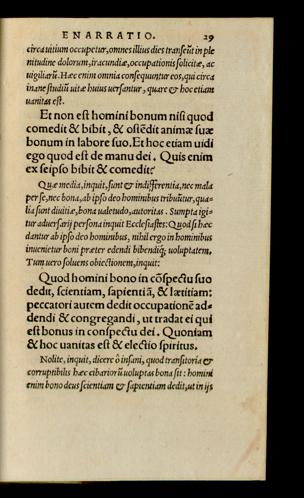 ENARRATIO. 29
circa uitium occupetur, omnes illius dies transeũt in ple
nitudine dolorum, iracundiæ, occupationis solicitæ, ac
uigiliarũ. Hæc enim omnia consequuntur eos, qui circa
inane studiũ uitæ huius uersantur, quare & hoc etiam
uanitas est.
Et non est homini bonum nisi quod
comedit & bibit, & ostẽdit animæ suæ
bonum in labore suo. Et hoc etiam uidi
ego quod est de manu dei. Quis enim
ex seipso bibit & comedit?
Quæ media, inquit, sunt & indifferentia, nec mala
per se, nec bona, ab ipso deo hominibus tribuũtur, qua-
lia sunt diuitiæ, bona ualetudo, autoritas. Sumpta igi-
tur aduersarij persona inquit Ecclesiastes: Quod si hæc
dantur ab ipso deo hominibus, nihil ergo in hominibus
inuenietur boni præter edendi bibendiq; uoluptatem.
Tum uero soluens obiectionem, inquit:
Quod homini bono in cõspectu suo
dedit, scientiam, sapientiã, & lætitiam:
peccatori autem dedit occupationẽ ad-
dendi & congregandi, ut tradat ei qui
est bonus in conspectu dei. Quoniam
& hoc uanitas est & electio spiritus.
Nolite, inquit, dicere ô insani, quod transitoria &
corruptibilis hæc cibariorũ uoluptas bona sit: homini
enim bono deus scientiam & sapientiam dedit, ut in ijs